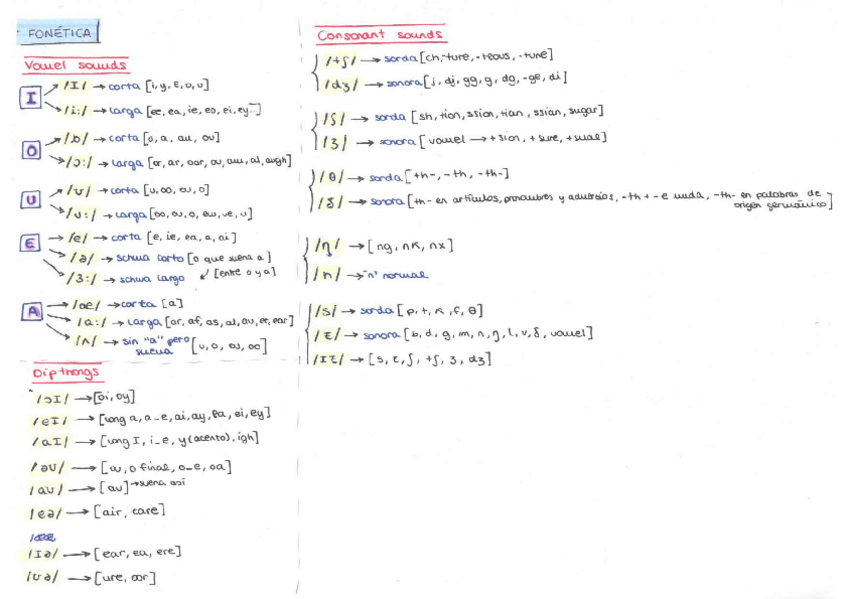 FONÉTICA
Vowel sounds
I
/I/ → corta [i, y, E, o, u]
/i:/ → larga [ee, ea, ie, eo, ei, ey...]
O
/ɒ/ → corta [o, a, au, ou]
/ɔ:/ → larga [or, ar, oar, ou, aw, al, augh]
U
/ʊ/ → corta [u, oo, ou, o]
/u:/ → larga [oo, ou, o, ew, ue, u]
E
/e/ → corta [e, ie, ea, a, ai]
/ə/ → schwa corto [o que suena a]
/ɜ:/ → schwa largo ↙ [entre o y a]
A
/ae/ → corta [a]
/a:/ → larga [ar, af, as, al, au, er, ear]
/ʌ/ → sin "a" pero suena [u, o, ou, oo]
Dipthongs
/ɔI/ → [oi, oy]
/eI/ → [long a, a_e, ai, ay, ea, ei, ey]
/aI/ → [long I, i_e, y (acento), igh]
/əʊ/ → [ow, o final, o_e, oa]
/aʊ/ → [ou] → suena así
/eə/ → [air, care]
/Iə/ → [ear, ea, ere]
/ʊə/ → [ure, oor]
Consonant sounds
/tʃ/ → sorda [ch, -ture, -teous, -tune]
/dʒ/ → sonora [j, dj, gg, g, dg, -ge, di]
/ʃ/ → sorda [sh, tion, ssion, tian, ssian, sugar]
/ʒ/ → sonora [vowel → +sion, +sure, +sual]
/θ/ → sorda [th-, -th, -th-]
/ð/ → sonora [th- en artículos, pronombres y adverbios, -th + -e muda, -th- en palabras de origen germánico]
/ŋ/ → [ng, nk, nx]
/n/ → "n" normal
/s/ → sorda [p, t, k, f, θ]
/z/ → sonora [b, d, g, m, n, ŋ, l, v, ð, vowel]
/Iz/ → [s, z, ʃ, tʃ, ʒ, dʒ]